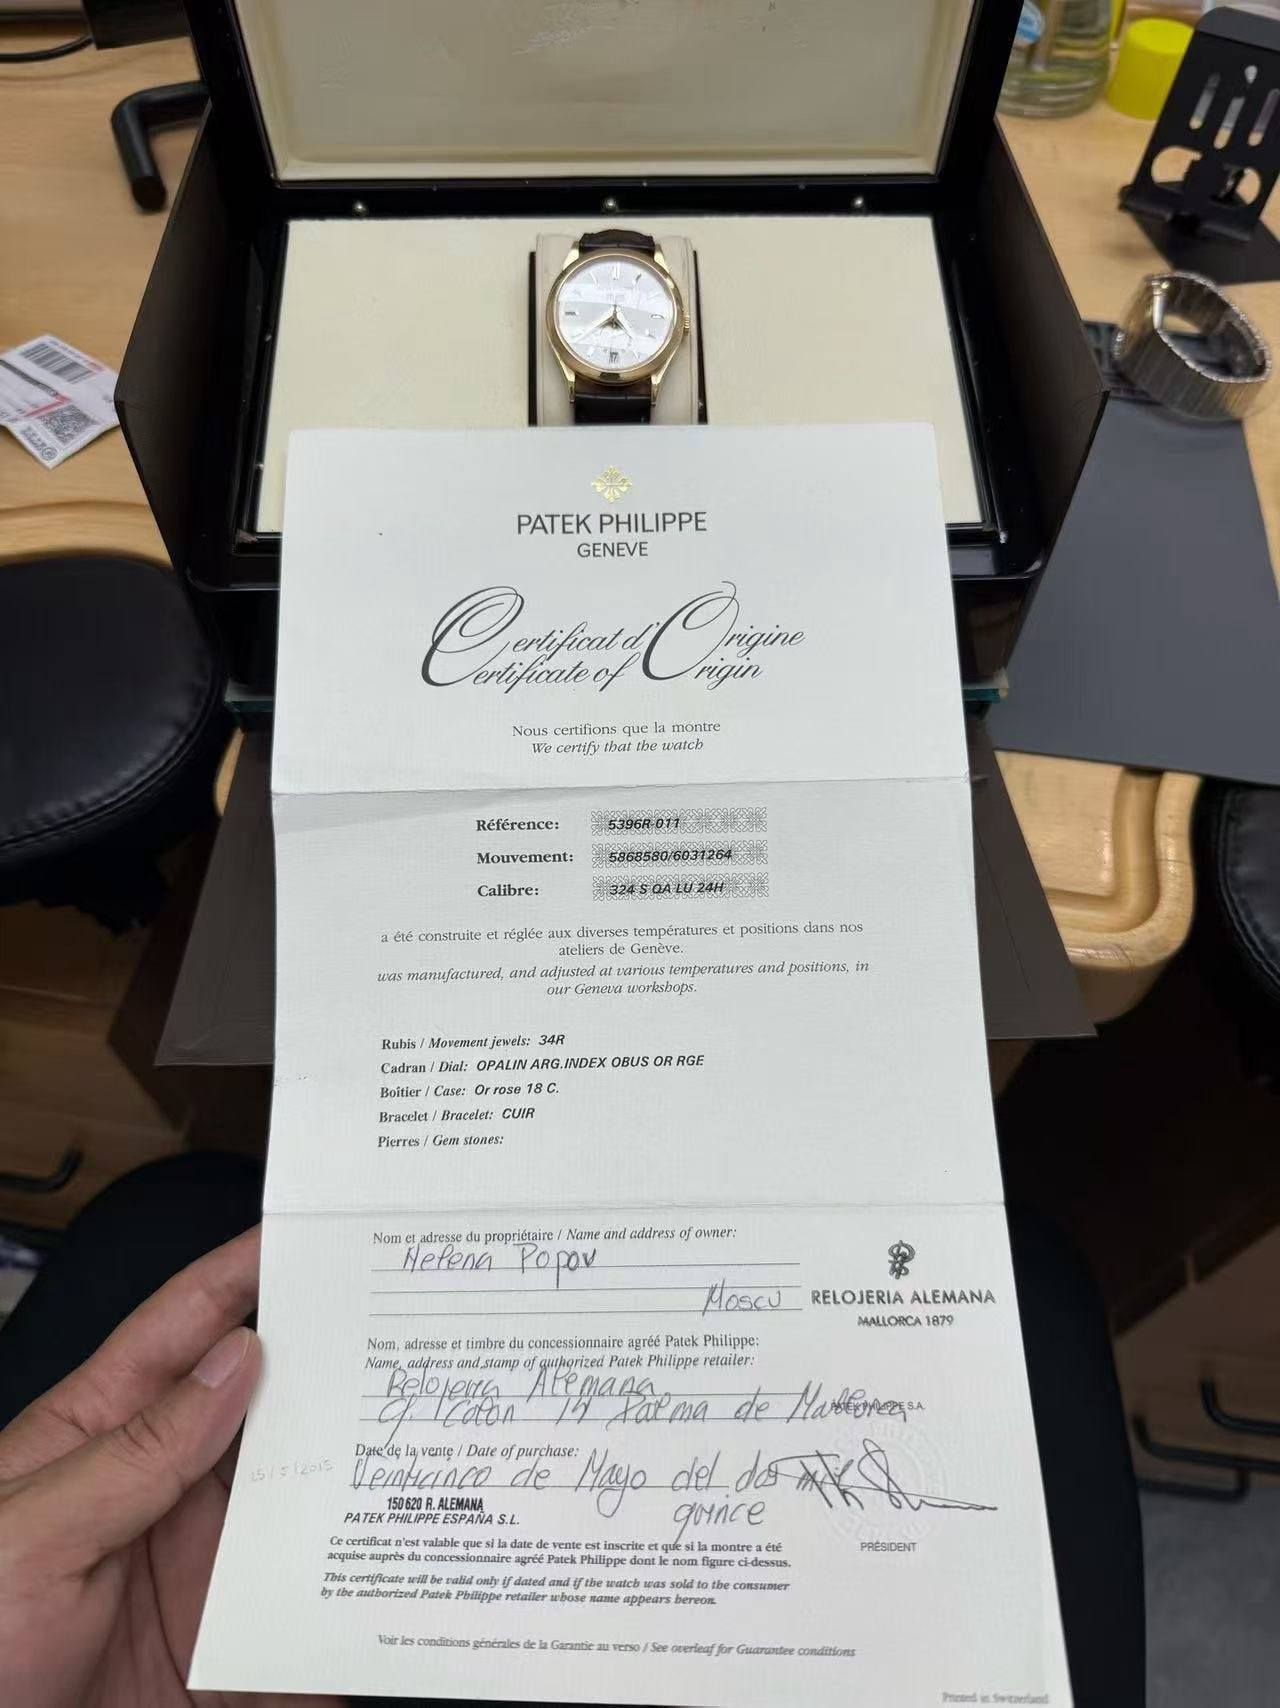 PATEK PHILIPPE
GENEVE
Certificat d'Origine
Certificate of Origin
Nous certifions que la montre
We certify that the watch
Référence: 5396R-011
Mouvement: 5868580/6031264
Calibre: 324 S QA LU 24H
a été construite et réglée aux diverses températures et positions dans nos
ateliers de Genève.
was manufactured, and adjusted at various temperatures and positions, in
our Geneva workshops.
Rubis / Movement jewels: 34R
Cadran / Dial: OPALIN ARG.INDEX OBUS OR RGE
Boîtier / Case: Or rose 18 C.
Bracelet / Bracelet: CUIR
Pierres / Gem stones:
Nom et adresse du propriétaire / Name and address of owner:
Helena Popov
Moscu
RELOJERIA ALEMANA
MALLORCA 1879
Nom, adresse et timbre du concessionnaire agréé Patek Philippe:
Name, address and stamp of authorized Patek Philippe retailer:
Relojeria Alemana
C/. Colon 14 Palma de Mallorca
PATEK PHILIPPE S.A.
Date de la vente / Date of purchase:
25/5/2015
Veinticinco de Mayo del dos mil
quince
150620 R. ALEMANA
PATEK PHILIPPE ESPAÑA S.L.
PRÉSIDENT
Ce certificat n'est valable que si la date de vente est inscrite et que si la montre a été
acquise auprès du concessionnaire agréé Patek Philippe dont le nom figure ci-dessus.
This certificate will be valid only if dated and if the watch was sold to the consumer
by the authorized Patek Philippe retailer whose name appears hereon.
Voir les conditions générales de la Garantie au verso / See overleaf for Guarantee conditions
Printed in Switzerland